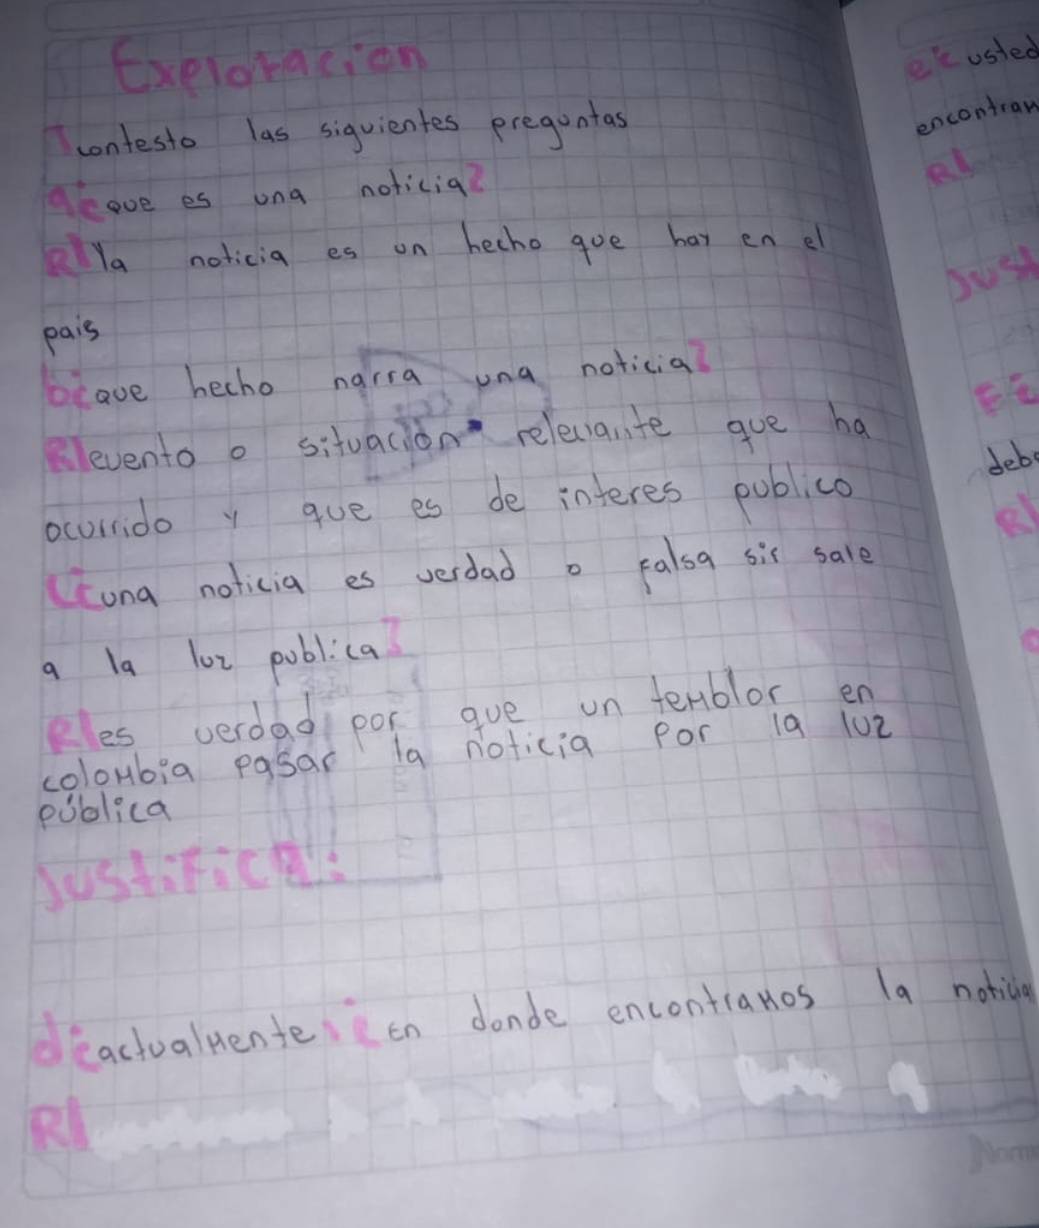 Exploracion
1 contesto las siguientes preguntas
a¿que es una noticia?
R/ la noticia es un hecho que hay en el
pais
b¿que hecho narra una noticia?
R/evento o situación relevante que ha
ocurrido y que es de interes publico
C¿una noticia es verdad o falsa sir sale
a la luz publica?
R/es verdad por que un temblor en
colombia pasar la noticia por la luz
pública
Justifica:
d¿actualmente ¿en donde encontramos la noticia
R/
e¿ usted
encontram
R/
Just
F¿
deb
R/
Norma